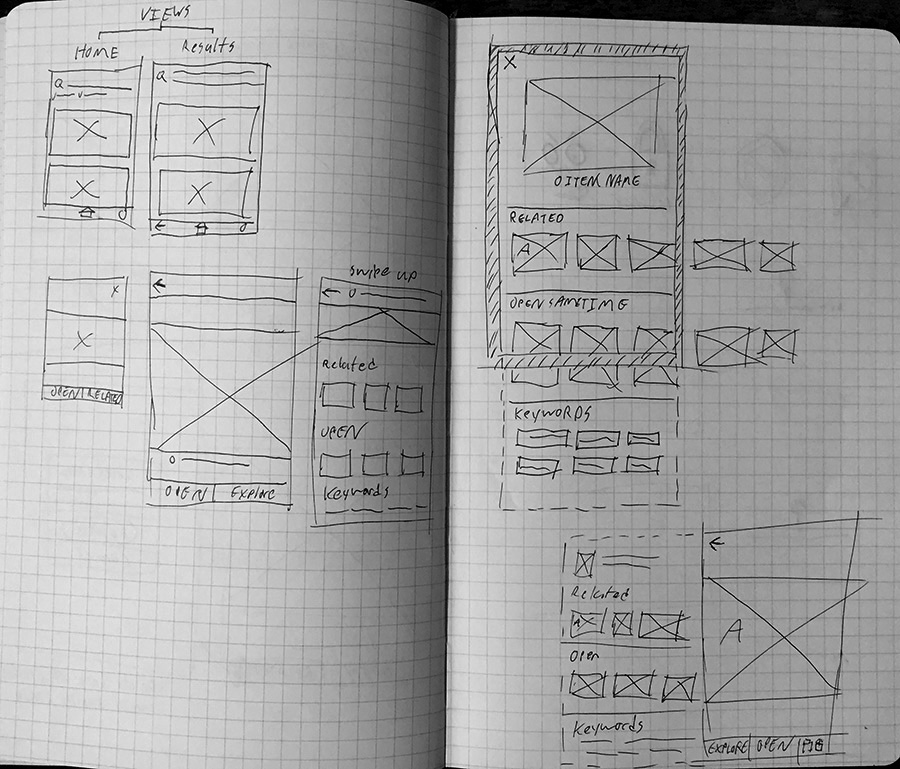 VIEWS
HOME
Results
OPEN RELATED
OPEN
swipe up
Related
OPEN
Keywords
X
ITEM NAME
RELATED
A
KEYWORDS
Related
A
Open
Keywords
A
EXPLORE OPEN